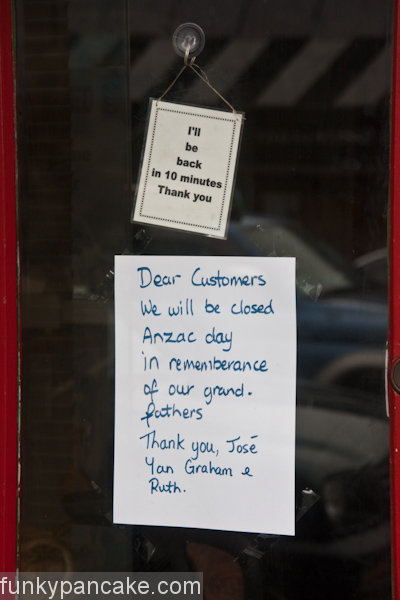 I'll
be
back
in 10 minutes
Thank you
Dear Customers
We will be closed
Anzac day
in rememberance
of our grand-
fathers
Thank you, José
Yan Graham e
Ruth.
funkypancake.com